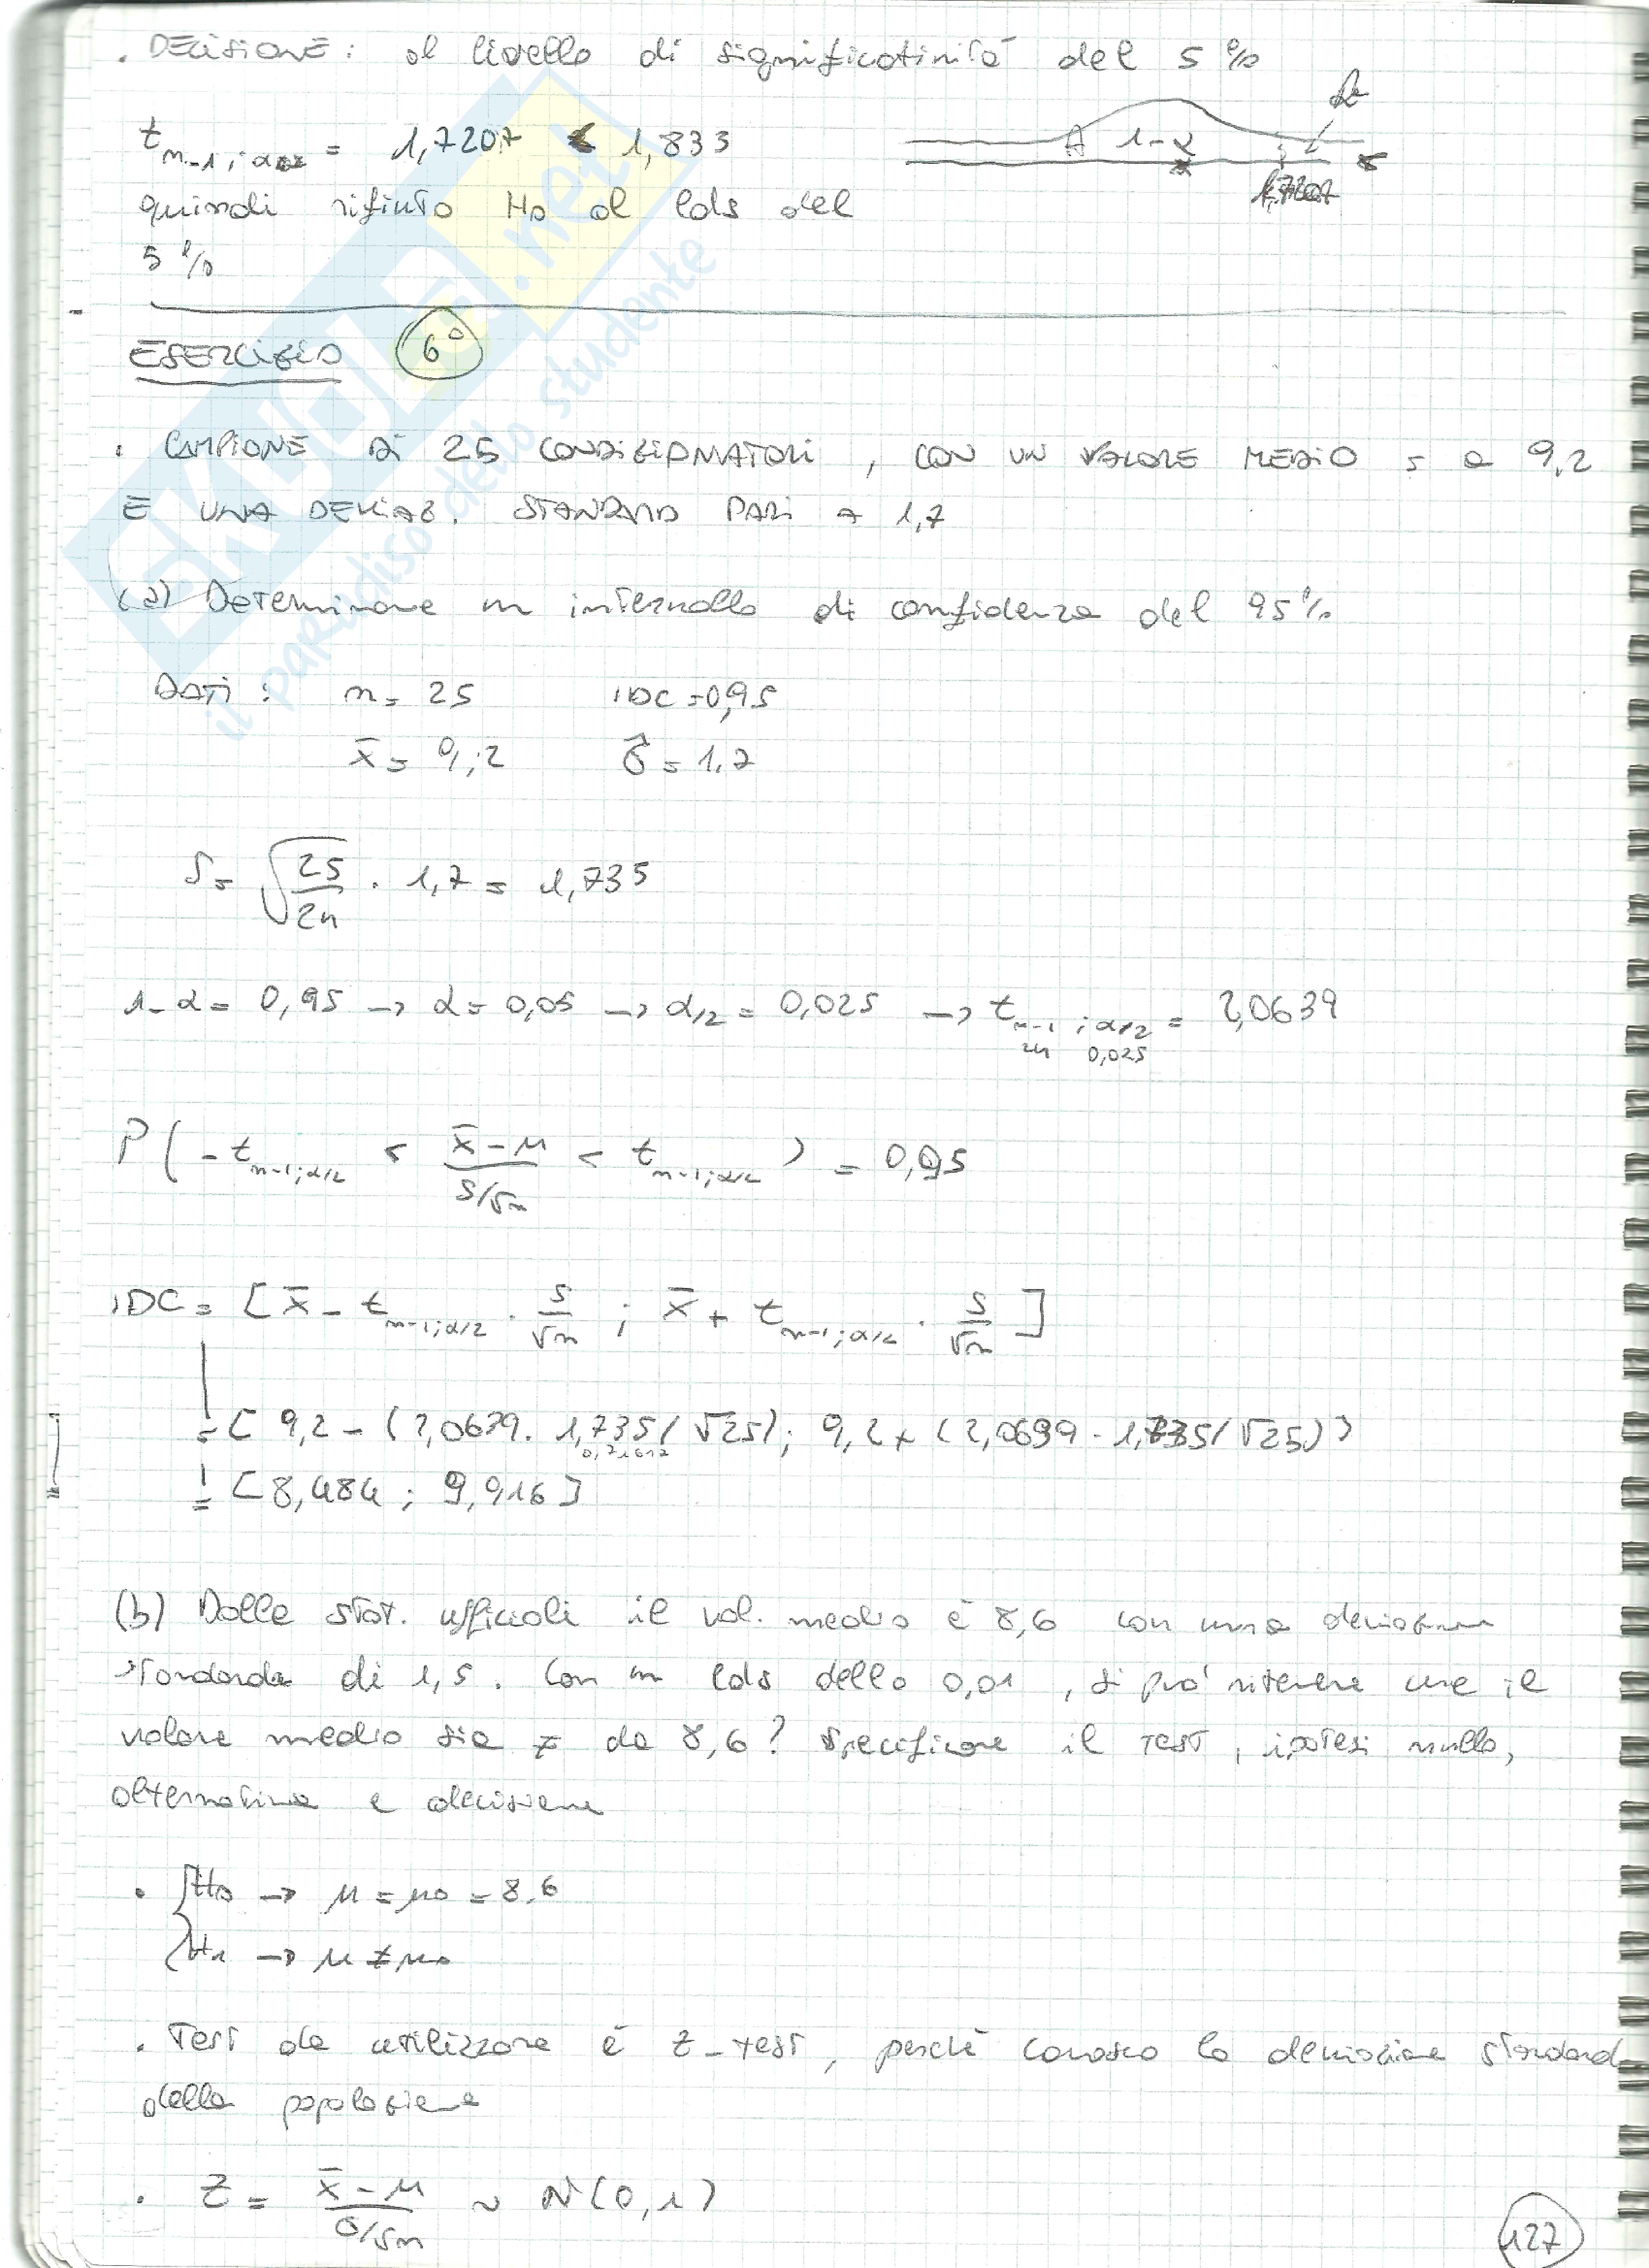 . DECISIONE: al livello di significatività del 5%
t n-1; α = 1,7207 < 1,833
A 1-α
quindi rifiuto H0 al lds del
5%
1,7207
ESERCIZIO 6°
. CAMPIONE DI 25 CONDIZIONATORI, CON UN VALORE MEDIO = a 9,2
E UNA DEVIAZ. STANDARD PARI A 1,7
(a) Determinare un intervallo di confidenza del 95%
DATI: n = 25 IDC = 0,95
x̄ = 9,2 σ̂ = 1,7
S = √(25/24) · 1,7 = 1,735
1-α = 0,95 → α = 0,05 → α/2 = 0,025 → t n-1; α/2 = 2,0639
24 0,025
P( -t n-1; α/2 < (x̄ - μ)/(S/√n) < t n-1; α/2 ) = 0,95
IDC = [ x̄ - t n-1; α/2 · S/√n ; x̄ + t n-1; α/2 · S/√n ]
= [ 9,2 - (2,0639 · 1,735/√25); 9,2 + (2,0639 · 1,735/√25) ]
= [8,484 ; 9,916]
(b) Dalle stat. ufficiali il val. medio è 8,6 con una deviazione
standard di 1,5. Con un lds dello 0,01, si può ritenere che il
valore medio sia ≠ da 8,6? Specificare il test, ipotesi nulla,
alternativa e decisione
. { H0 → μ = μ0 = 8,6
H1 → μ ≠ μ0
. Test da utilizzare è z-test, perché conosco la deviazione standard
della popolazione
. Z = (x̄ - μ)/(σ/√n) ~ N(0,1)
427
SKUOLA.net
il paradiso dello studente